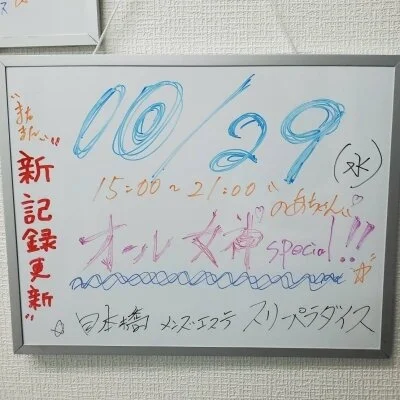 10/29
(水)
15:00~21:00
のあちゃん
オール女神special!!
"新記録更新"
☆日本橋 メンズエステ スリーパラダイス